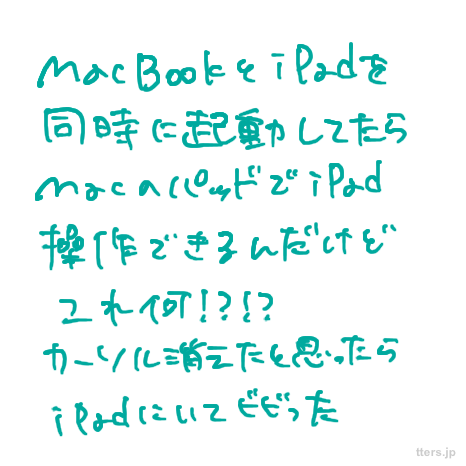 MacBookとiPadを
同時に起動してたら
macのパッドでiPad
操作できるんだけど
これ何!?!?
カーソル消えたと思ったら
iPadにいてビビった
tters.jp